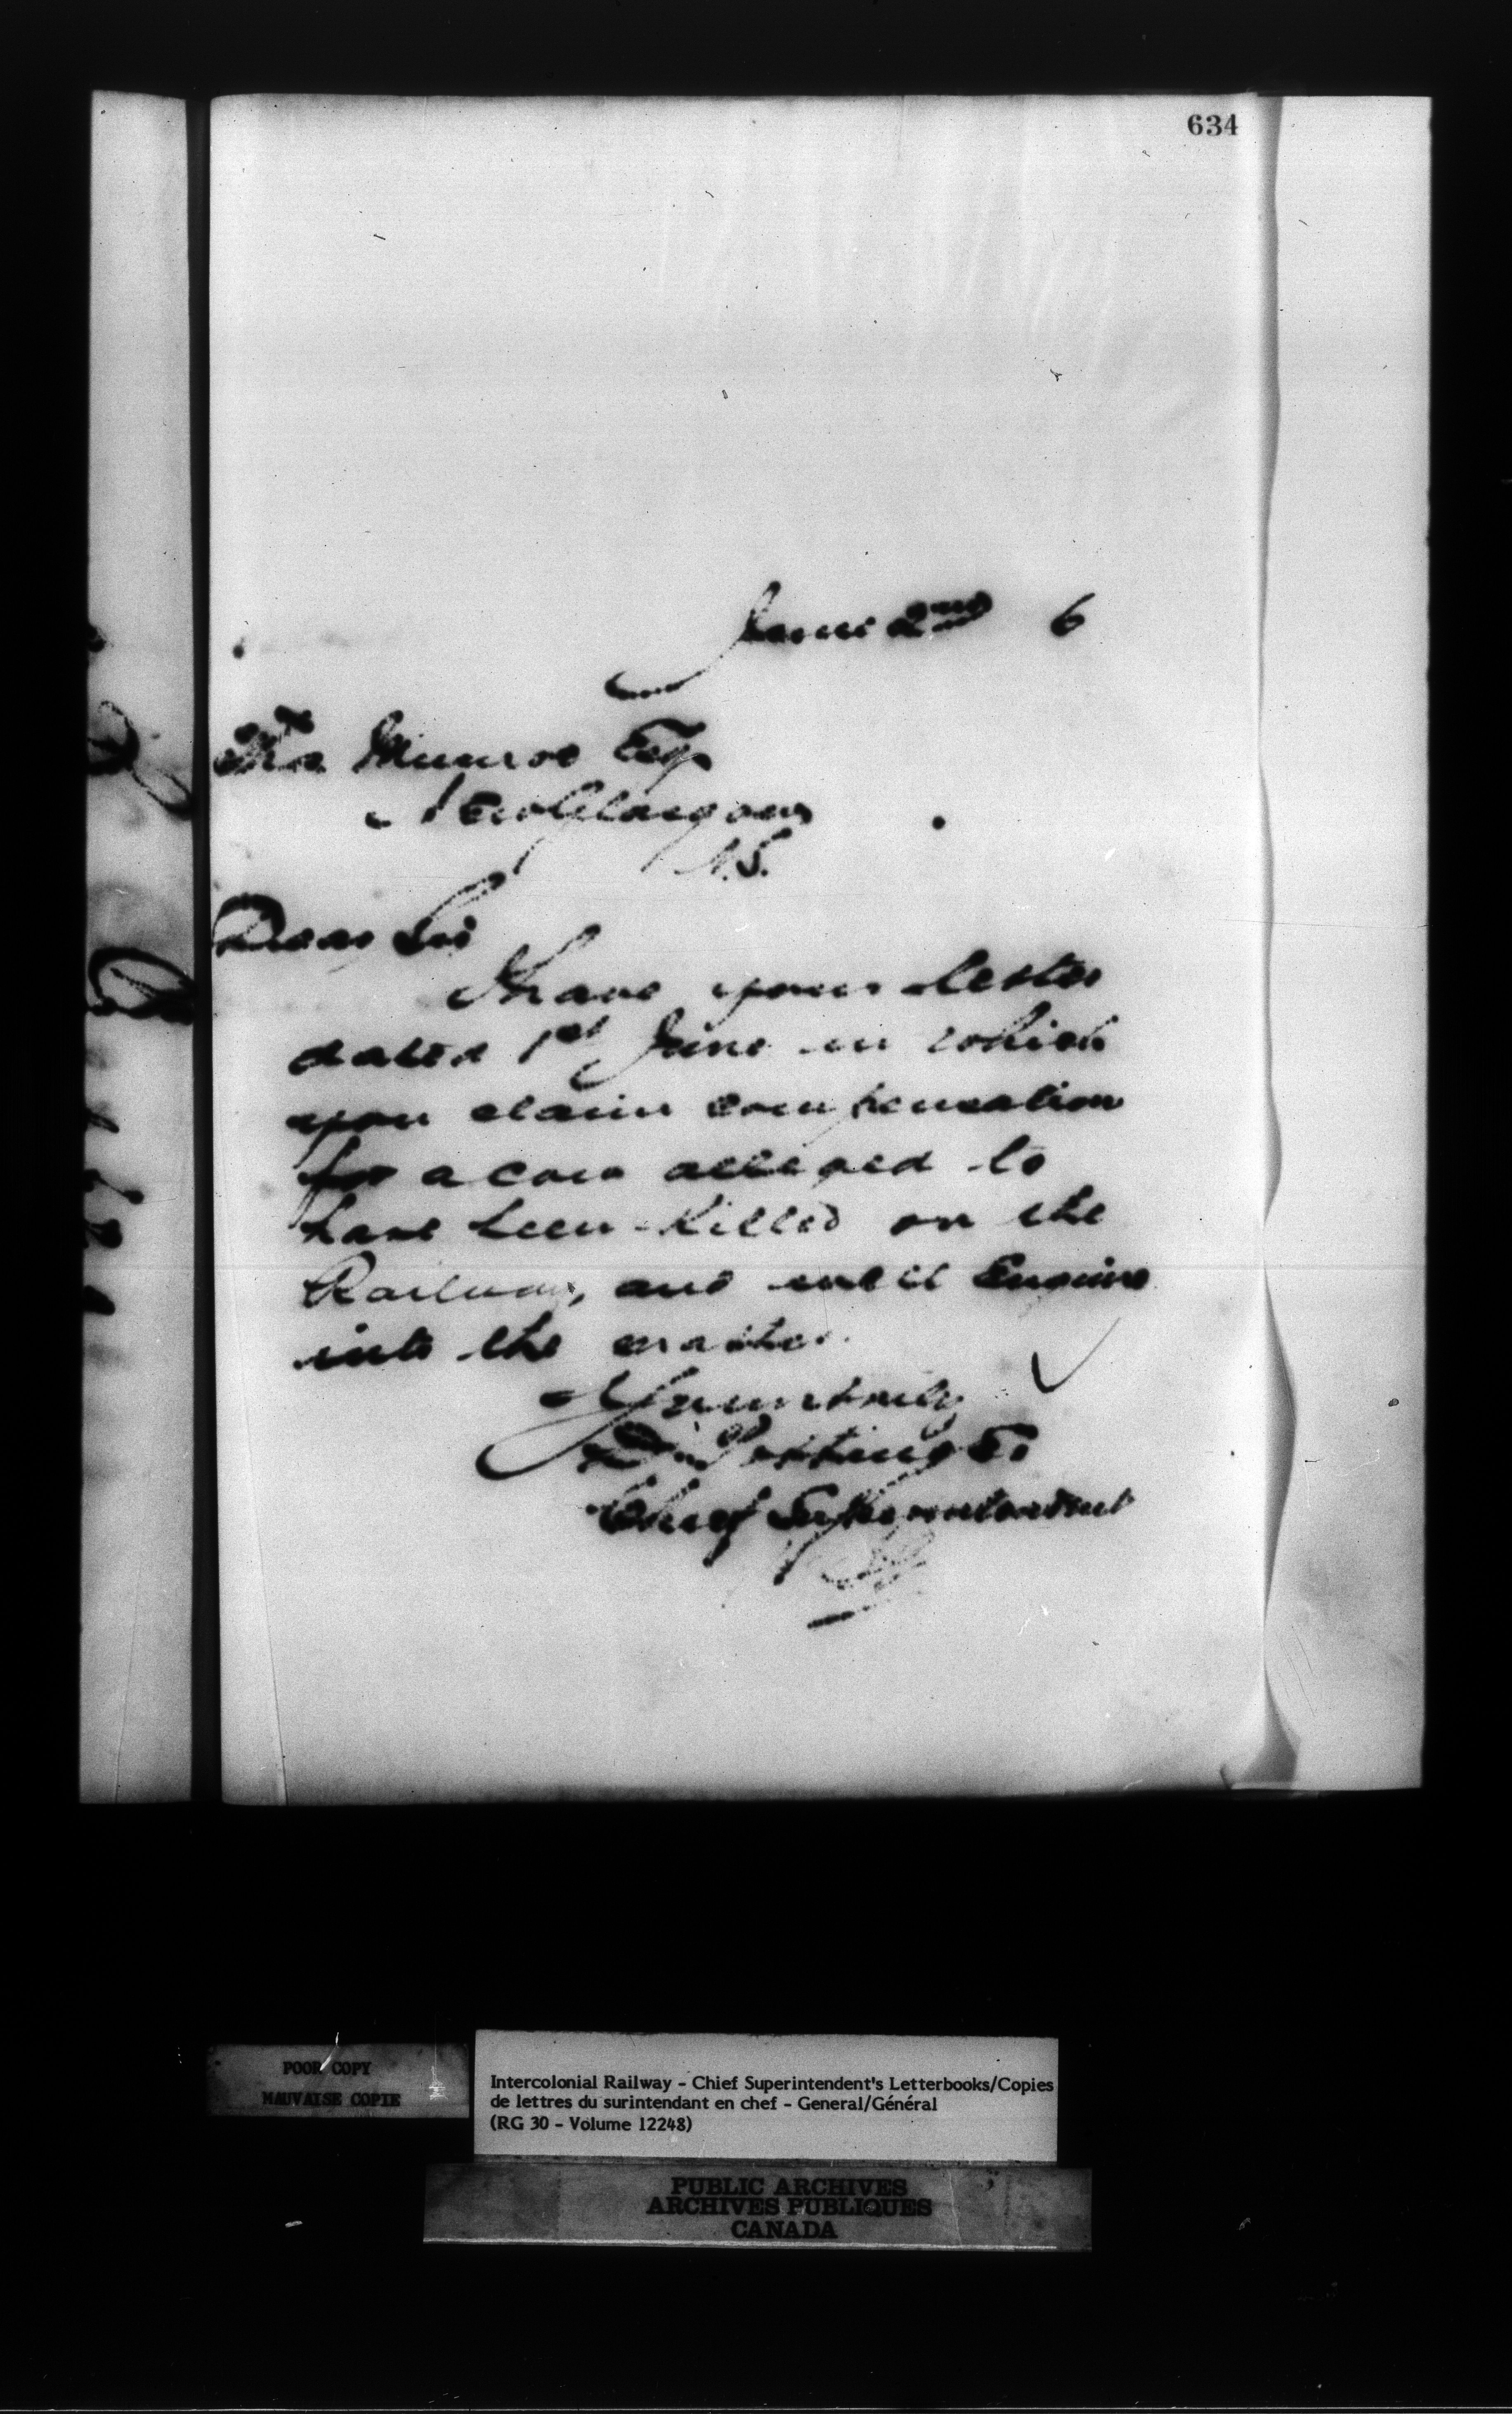 634
June 2nd 6
Munroe Esq
New Glasgow
N.S.
Dear Sir
I have your letter
dated 1st June in which
you claim compensation
for a cow alleged to
have been killed on the
Railway, and will Enquire
into the matter.
Yours truly
D. Pottinger
Chief Superintendent
POOR COPY
MAUVAISE COPIE
Intercolonial Railway - Chief Superintendent's Letterbooks/Copies
de lettres du surintendant en chef - General/Général
(RG 30 - Volume 12248)
PUBLIC ARCHIVES
ARCHIVES PUBLIQUES
CANADA